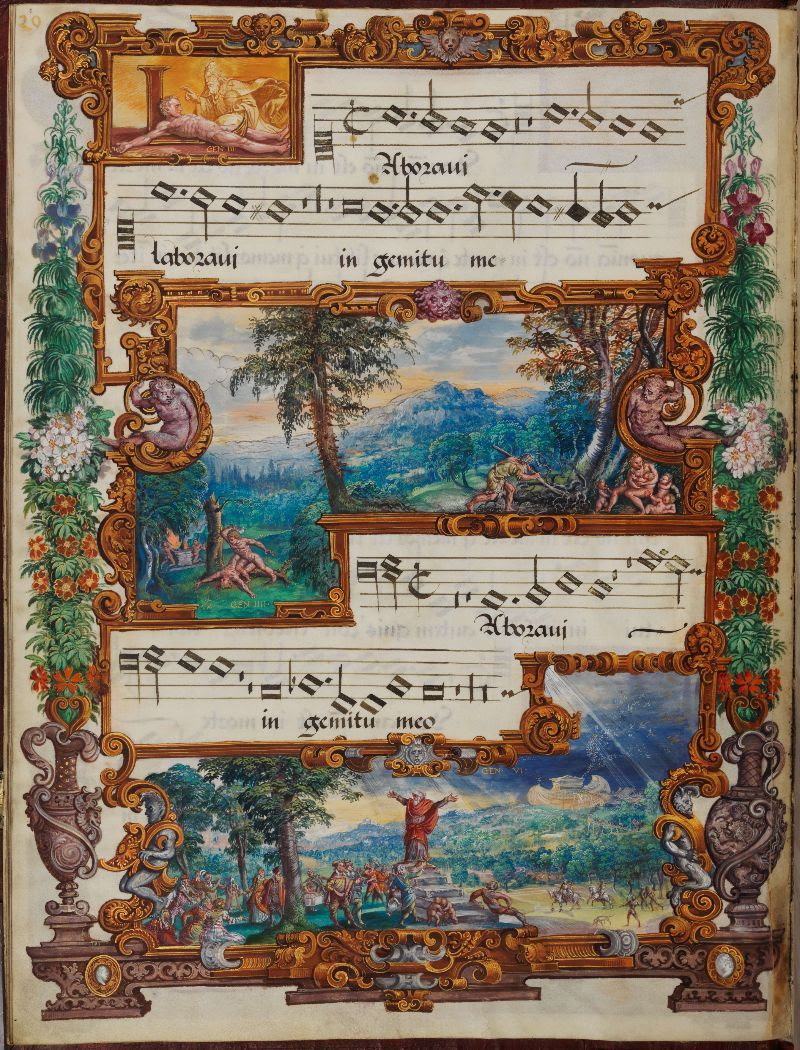 20
L
GEN III
Aboraui
laboraui in gemitu me
GEN IIII
Aboraui
in gemitu meo
GEN VI